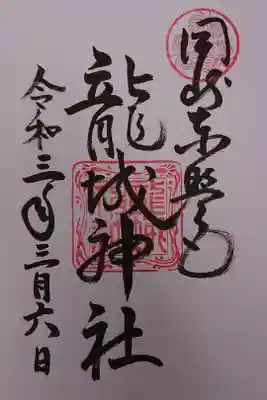 岡崎東照宮
龍城神社
令和三年三月六日